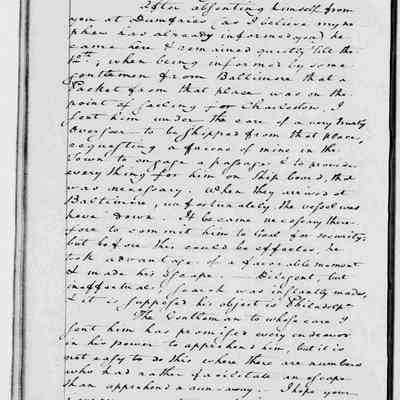 After absenting himself from
you at Dumfries (as I believe my ne
phew has already informed you) he
came here & remained quietly till the
12th, when being informed by some
Gentlemen from Baltimore that a
Packet from that place was on the
point of Sailing for Charleston, I
sent him under the care of a very trusty
Overseer to be shipped from that place,
requesting a friend of mine in the
Town to engage a passage & to provide
every thing for him on Ship board, that
was necessary. When they arrived at
Baltimore, unfortunately, the vessel was
hove down. It became necessary there-
fore to commit him to Goal for security;
but before this could be effected, he
took advantage of a favorable moment
& made his escape. Diligent, but
ineffectual search was instantly made,
& it is supposed his object is Philadelpa
The Gentleman to whose care I
sent him has promised every endeavor
in his power to apprehend him, but it is
not easy to do this where there are numbers
who had rather facilitate an escape
than apprehend a run-away. I hope your